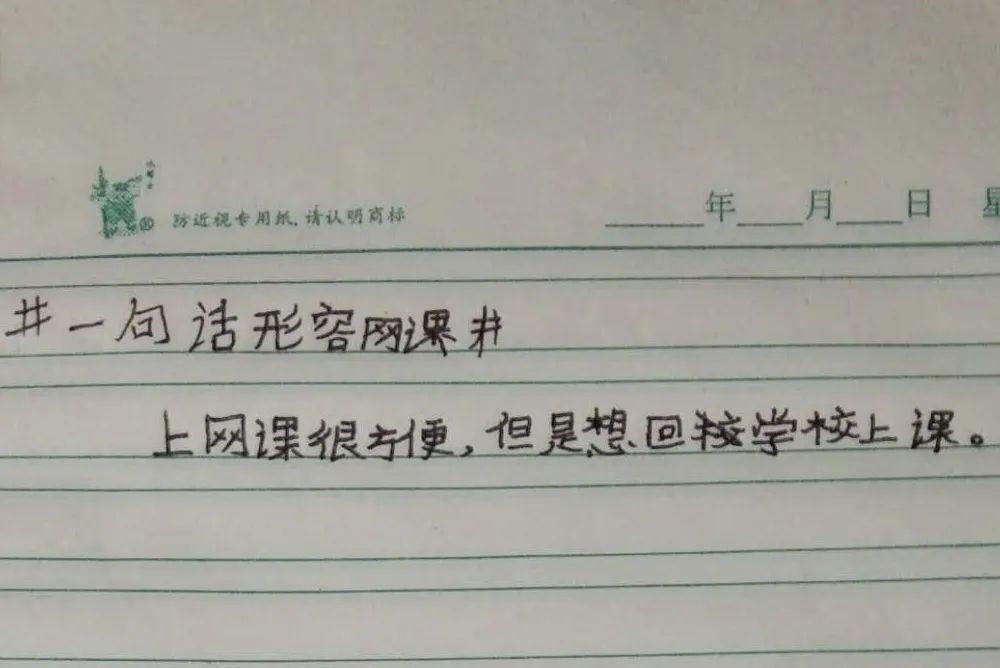 防近视专用纸,请认明商标
年 月 日 星
#一句话形容网课#
上网课很方便,但是想回校学校上课。